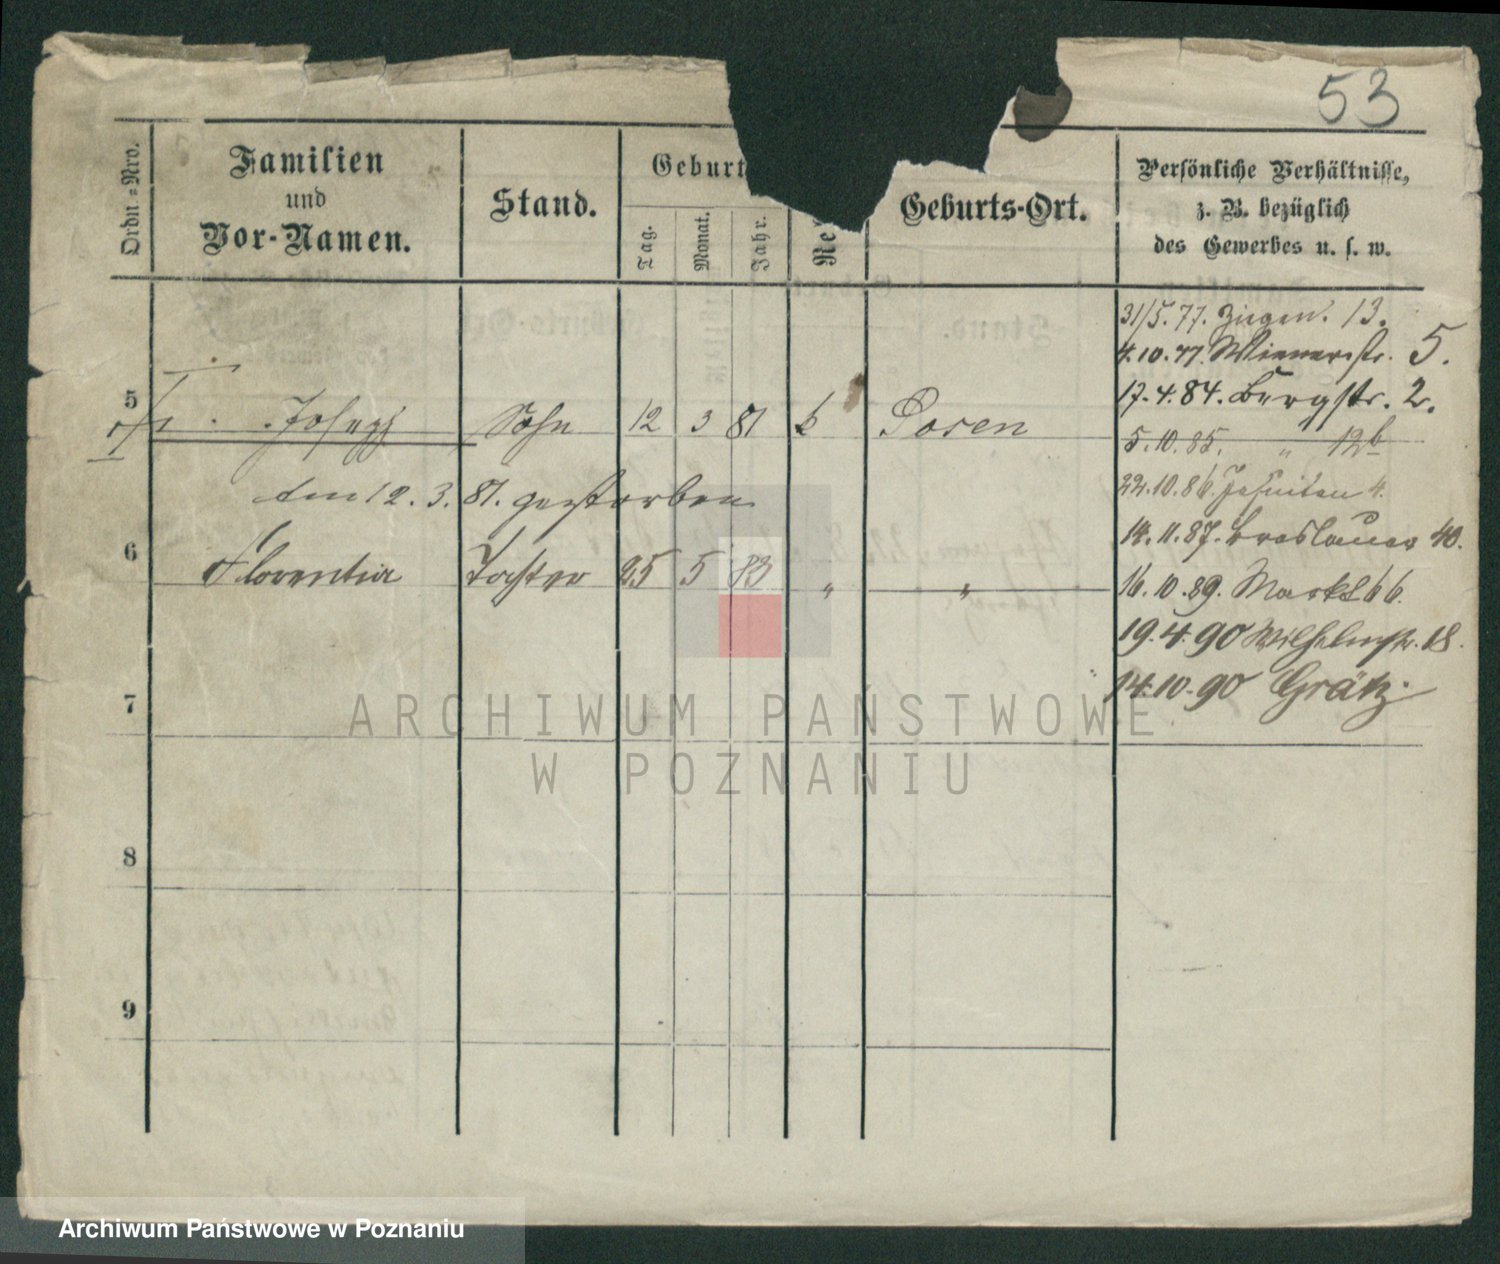 53
Ordn=Nro.
Familien
und
Vor-Namen.
Stand.
Geburt
Tag.
Monat.
Jahr.
Re
Geburts-Ort.
Persönliche Verhältnisse,
z. B. bezüglich
des Gewerbes u. s. w.
31/5. 77. Ziegen. 13.
4.10.77. Wienerstr. 5.
17.4.84. Bergstr. 2.
5.10.85. " 12b
22.10.86. Jesuiten 4.
14.11.87. Breslauer 40.
16.10.89. Markt 66.
19.4.90 Wilhelmstr. 18.
14.10.90 Grätz.
5 Joseph Sohn 12 3 81 k Posen
am 12. 3. 81. gestorben
6 Florentina Tochter 25 5 83 " "
7
8
9
ARCHIWUM PAŃSTWOWE
W POZNANIU
Archiwum Państwowe w Poznaniu